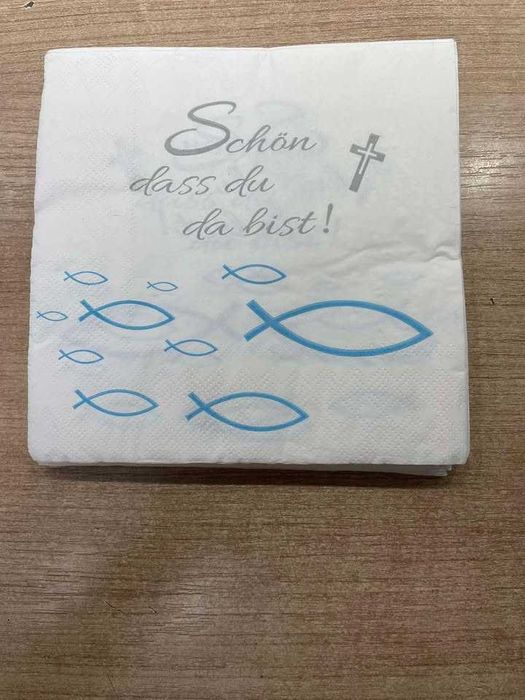 Schön
dass du
da bist!